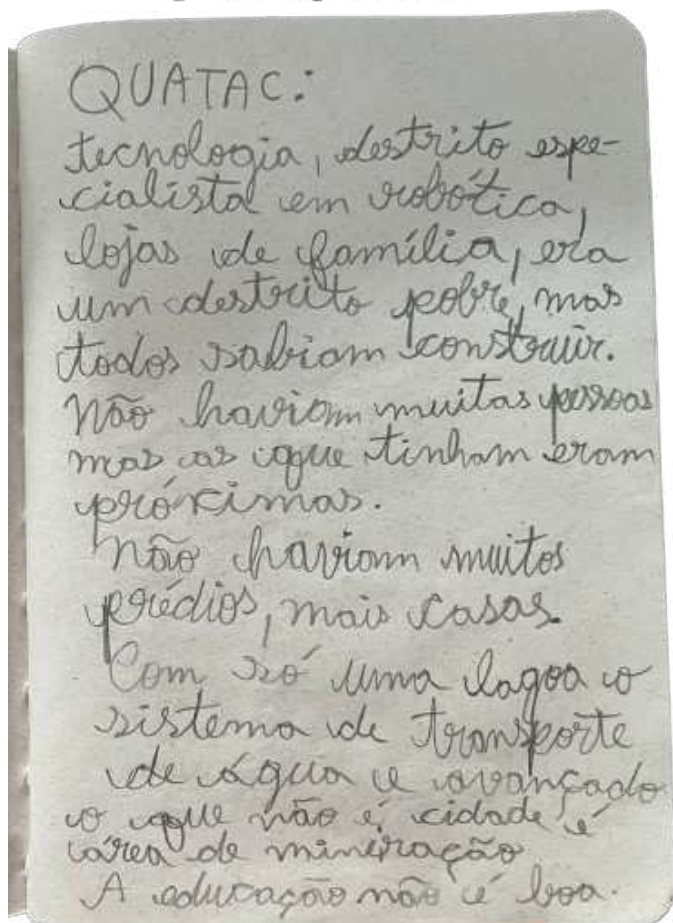 QUATAC:
tecnologia, destrito espe-
cialista em robótica,
lojas de família, era
um destrito pobre, mas
todos sabiam construir.
Não haviam muitas pessoas
mas as que tinham eram
próximas.
Não haviam muitos
prédios, mais casas.
Com só uma lagoa o
sistema de transporte
de água e avançado
o que não é cidade é
área de mineração
A educação não é boa.